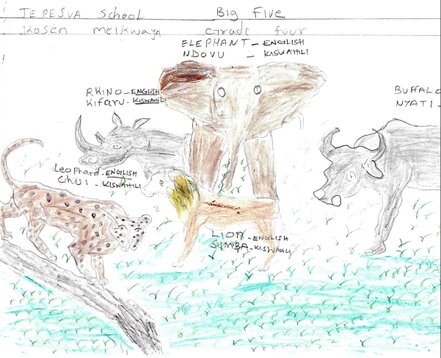 TEPESUA SCHOOL Big Five
Kosen melkwaya Grade fuur
ELEPHANT - ENGLISH
NDOVU - KISWAHILI
RHINO - ENGLISH
Kifaru - KISWAHILI
BUFFALO
NYATI -
Leophard - ENGLISH
Chui - KISWAHILI
LION - ENGLISH
SIMBA - KISWAHILI